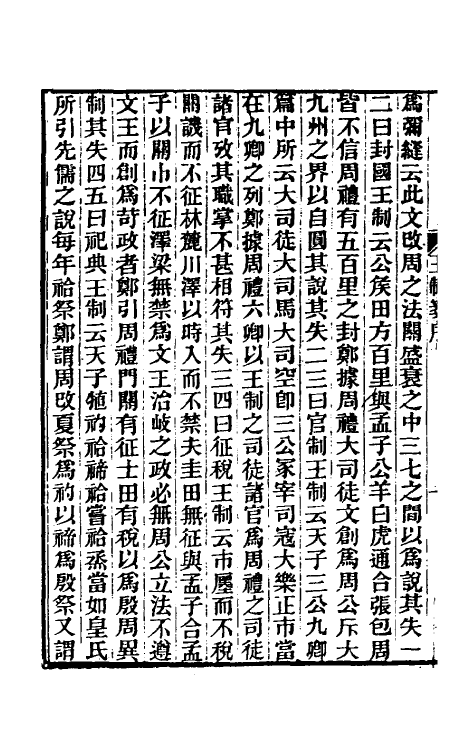 爲彌縫云此文改周之法關盛衰之中三七之閒以爲說其失一
二曰封國王制云公矦田方百里與孟子公羊白虎通合張包周
皆不信周禮有五百里之封鄭據周禮大司徒文創爲周公斥大
九州之界以自圓其說其失二三曰官制王制云天子三公九卿
篇中所云大司徒大司馬大司空卽三公冢宰司寇大樂正市當
在九卿之列鄭據周禮六卿以王制之司徒諸官爲周禮之司徒
諸官攷其職掌不甚相符其失三四曰征稅王制云市廛而不稅
關譏而不征林麓川澤以時入而不禁夫圭田無征與孟子合孟
子以關巿不征澤梁無禁爲文王治岐之政必無周公立法不遵
文王而創爲苛政者鄭引周禮門關有征士田有稅以爲殷周異
制其失四五曰祀典王制云天子犆礿祫禘祫嘗祫烝當如皇氏
所引先儒之說每年祫祭鄭謂周改夏祭爲礿以禘爲殷祭又謂
王制箋序